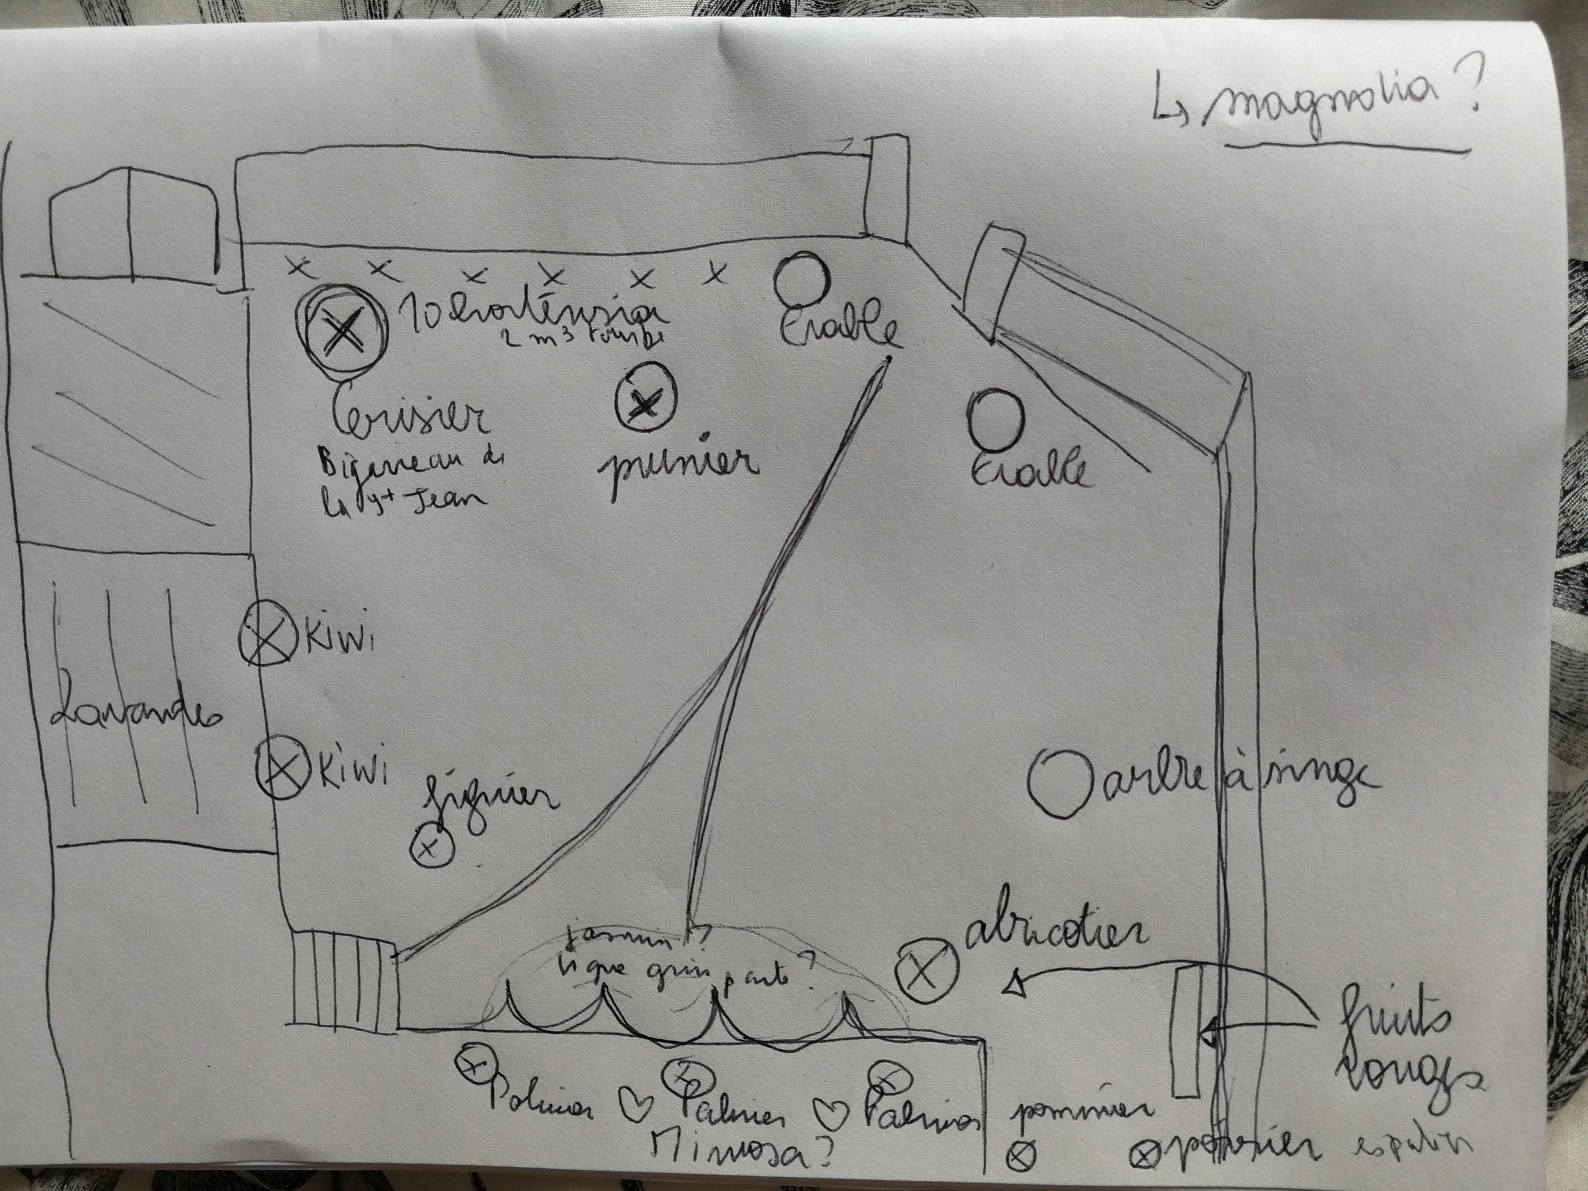 ↳ magnolia ?
10 horténsia
2 m³
Erable
Cerisier
Bigarreau de
la St Jean
prunier
Erable
Kiwi
Lavandes
Kiwi
figuier
arbre à singe
abricotier
jasmin ?
vigne grimpante ?
fruits
rouges
Palmier ♡ Palmier ♡ Palmier
Mimosa ?
pommier
espalier